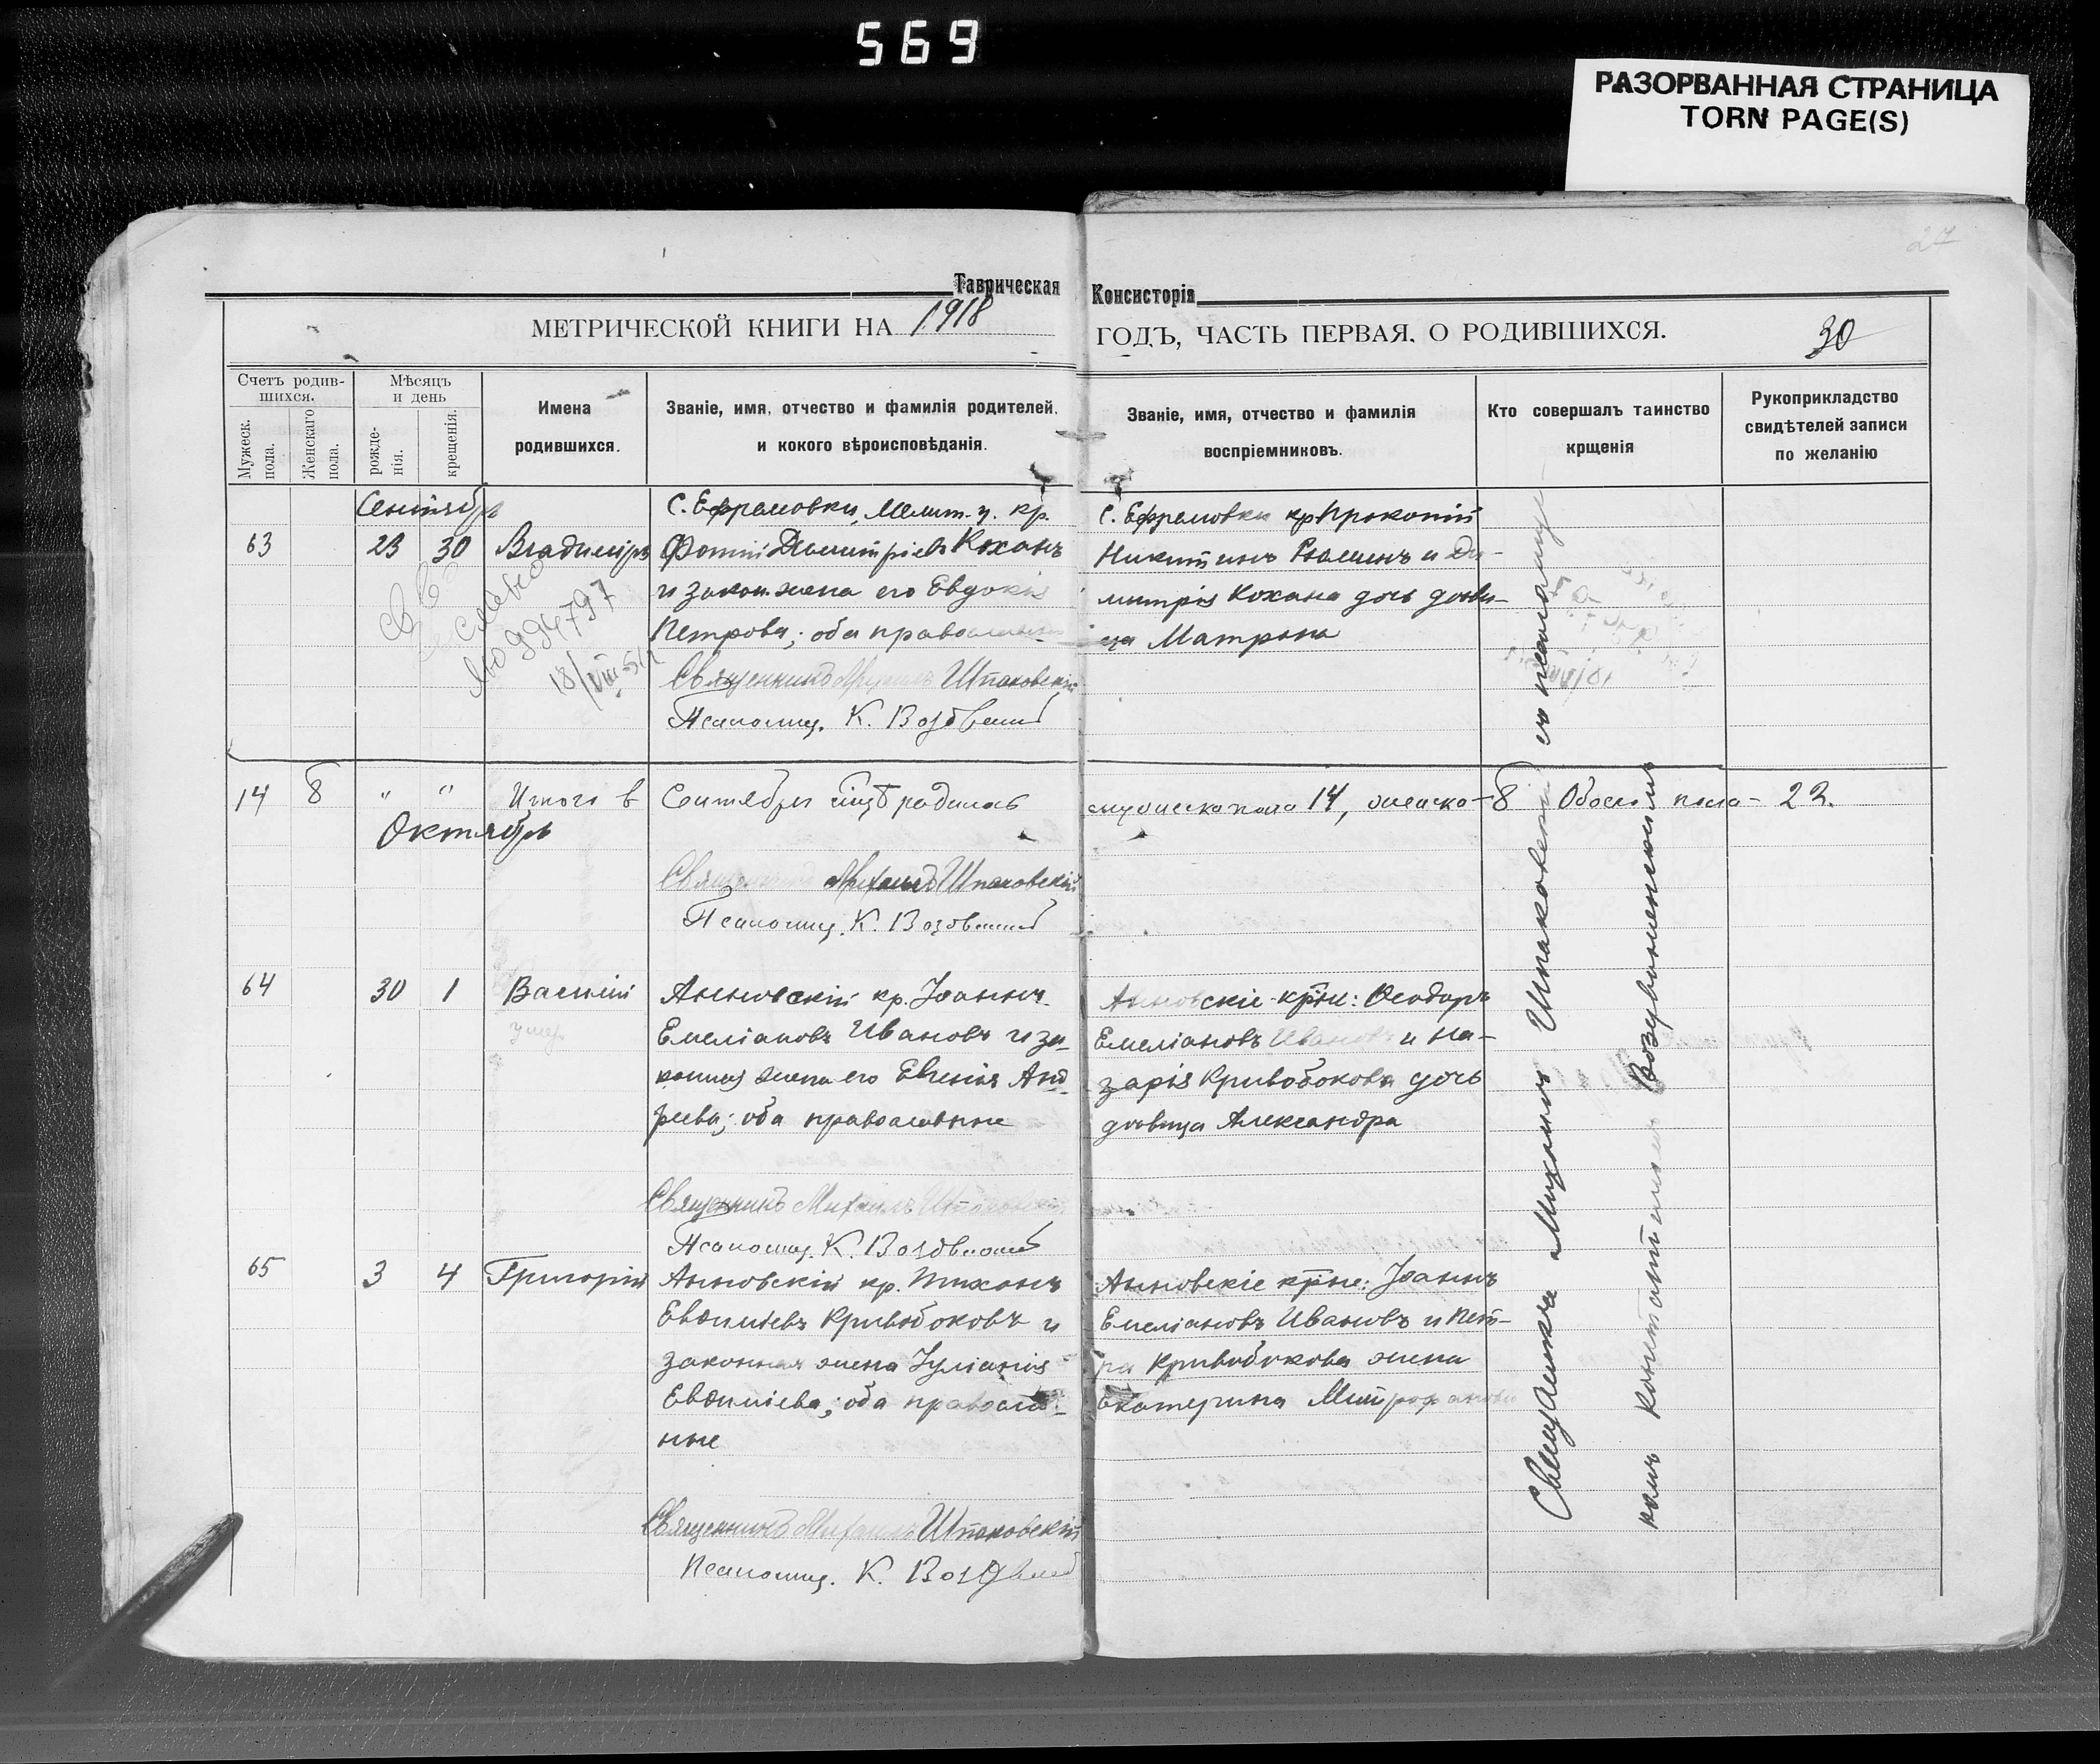 569
РАЗОРВАННАЯ СТРАНИЦА
TORN PAGE(S)
27
Таврическая Консисторія
МЕТРИЧЕСКОЙ КНИГИ НА 1918 ГОДЪ, ЧАСТЬ ПЕРВАЯ, О РОДИВШИХСЯ.
30
Счетъ родив-
шихся.
Мужеск.
пола.
Женскаго
пола.
Мѣсяцъ
и день
рожде-
нія.
крещенія.
Имена
родившихся.
Званіе, имя, отчество и фамилія родителей,
и кокого вѣроисповѣданія.
Званіе, имя, отчество и фамилія
воспріемниковъ.
Кто совершалъ таинство
крщенія
Рукоприкладство
свидѣтелей записи
по желанію
Сентябрь
63 23 30 Владиміръ
С. Ефремовки, Мелит. у. кр.
Фотій Димитріевъ Коханъ
и закон. жена его Евдокія
Петрова; оба православн
Священникъ Михаилъ Шпаковскій
Псаломщ. К. Воздвиж
С. Ефремовки кр Прокопій
Никитинъ и Ди-
митрія Кохана дочь дѣви-
ца Матрона
994797
18/VIII-51
14 8 " " Итого в Сентябрѣ родилось мужеска пола 14, женска- 8 Обоего пола- 22.
Октябрь
Священникъ Михаилъ Шпаковскій
Псаломщ. К. Воздвиж
64 30 1 Василій
умер
Анновскій кр. Іоаннъ
Емеліановъ Ивановъ и за-
конная жена его Евгенія Анд-
реева; оба православные
Священникъ Михаилъ Шпаковскій
Псаломщ. К. Воздвиж
Анновскіе кр-не: Ѳеодоръ
Емеліановъ Ивановъ и На-
зарія Кривобокова дочь
дѣвица Александра
65 3 4 Григорій
Анновскій кр. Тихонъ
Евѳиміевъ Кривобоковъ и
законная жена Іуліанія
Евѳиміева; оба православ-
ные
Священникъ Михаилъ Шпаковскій
Псаломщ. К. Воздвиж
Анновскіе кр-не: Іоаннъ
Емеліановъ Ивановъ и Пет-
ра Кривобокова жена
Екатерина Митрофанова
Священникъ Михаилъ Шпаковскій съ псаломщи
комъ Константиномъ Воздвиженскимъ